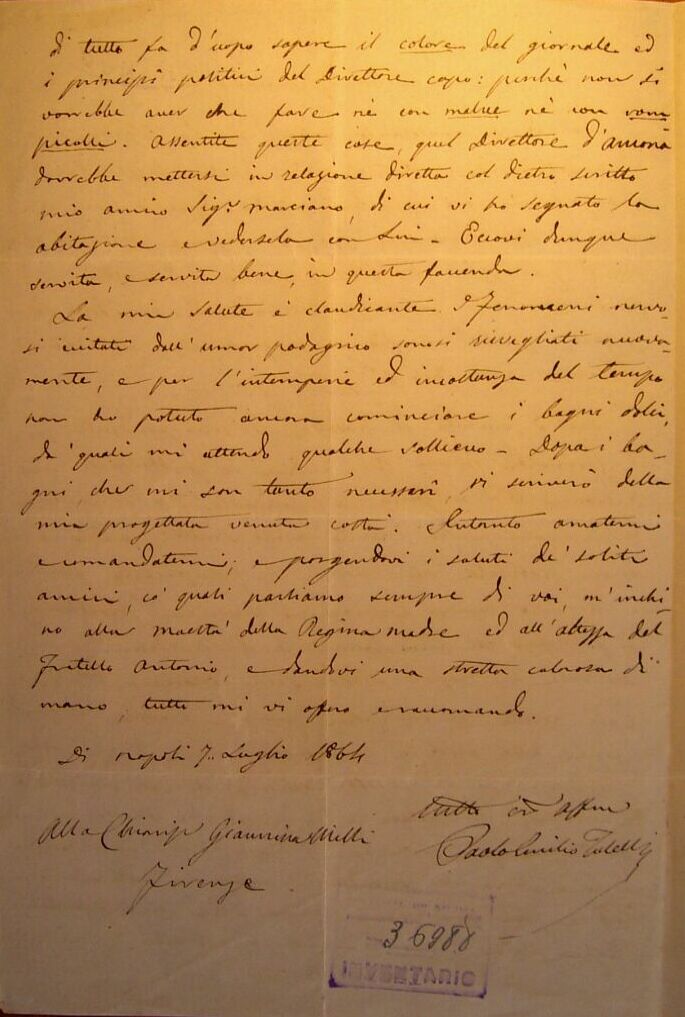 di tutto fa d'uopo sapere il colore del giornale ed
i principj politici del Direttore capo: perchè non si
vorrebbe aver che fare nè con malve nè con
. Assentite queste cose, quel Direttore d'Ancona
dovrebbe mettersi in relazione diretta col dietro scritto
mio amico Sig.r Marciano, di cui vi ho segnato la
abitazione e vedersela con Lui - Eccovi dunque
servita, e servita bene, in questa faccenda.
La mia salute è claudicante. I fenomeni nervo-
si eccitati dall'umor podagrico sonosi risvegliati nuova-
mente, e per l'intemperie ed incostanza del tempo
non ho potuto ancora cominciare i bagni dolci,
da' quali mi attendo qualche sollievo - Dopo i ba-
gni, che mi son tanto necessarî, vi scriverò della
mia progettata venuta costà. Intanto amatemi
e comandatemi; e porgendovi i saluti de' soliti
amici, co' quali parliamo sempre di voi, m'inchi-
no alla maestà della Regina madre ed all'altezza del
fratello Antonio, e dandovi una stretta calorosa di
mano, tutto mi vi offro e raccomando.
Di Napoli 7. Luglio 1864
tutto ed affmo
Alla Giannina Milli
Paolo Emilio
Firenze
36988
INVENTARIO